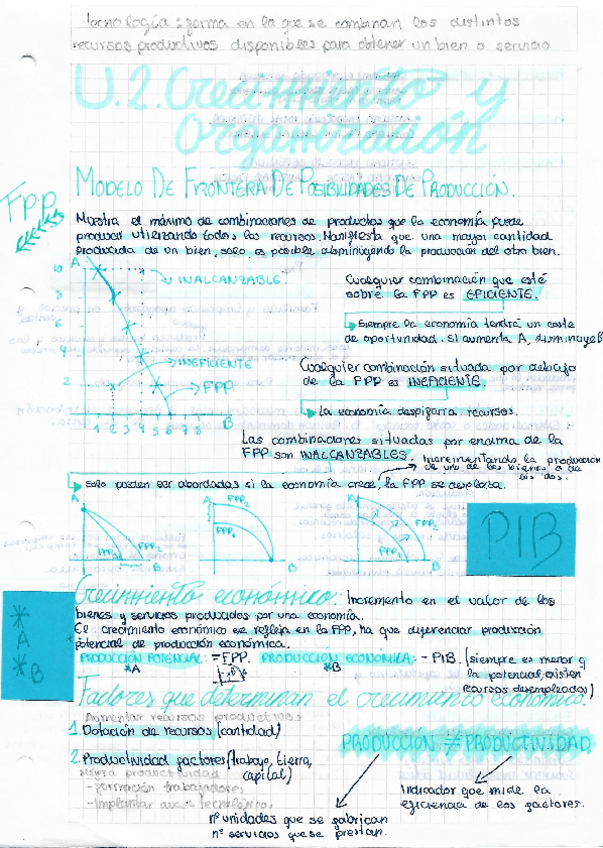 Tecnología: forma en la que se combinan los distintos
recursos productivos disponibles para obtener un bien o servicio
U.2. Crecimiento y
Organización
FPP
MODELO DE FRONTERA DE POSIBILIDADES DE PRODUCCIÓN.
Muestra el máximo de combinaciones de productos que la economía puede
producir utilizando todos los recursos. Manifiesta que una mayor cantidad
producida de un bien, solo es posible disminuyendo la producción del otro bien.
A
10
8
6
4
2
1 2 3 4 5 6 7 8
B
INALCANZABLE.
INEFICIENTE
FPP
Cualquier combinación que esté
sobre la FPP es EFICIENTE.
Siempre la economía tendrá un coste
de oportunidad. Si aumenta A, disminuye B
Cualquier combinación situada por debajo
de la FPP es INEFICIENTE.
La economía despilfarra recursos.
Las combinaciones situadas por encima de la
FPP son INALCANZABLES.
Incrementando la producción
de uno de los bienes o de
los dos.
Solo pueden ser abordadas si la economía crece, la FPP se desplaza.
A
FPP1 FPP2
B
A
FPP2
FPP1
B
A
FPP2
FPP1
B
PIB
Crecimiento económico: Incremento en el valor de los
bienes y servicios producidos por una economía.
El crecimiento económico se refleja en la FPP, ha que diferenciar producción
potencial de producción económica.
PRODUCCIÓN POTENCIAL: = FPP. PRODUCCIÓN ECONÓMICA: - PIB. (siempre es menor q
*A *B la potencial, existen
recursos desempleados)
*
A
*
B
Factores que determinan el crecimiento económico.
Aumentar recursos productivos
1. Dotación de recursos (cantidad)
2. Productividad factores (trabajo, tierra,
capital)
mejora productividad
- formación trabajadores
- Implantar avances tecnológicos
PRODUCCIÓN ≠ PRODUCTIVIDAD
Indicador que mide la
eficiencia de los factores.
nº unidades que se fabrican
nº servicios que se prestan.